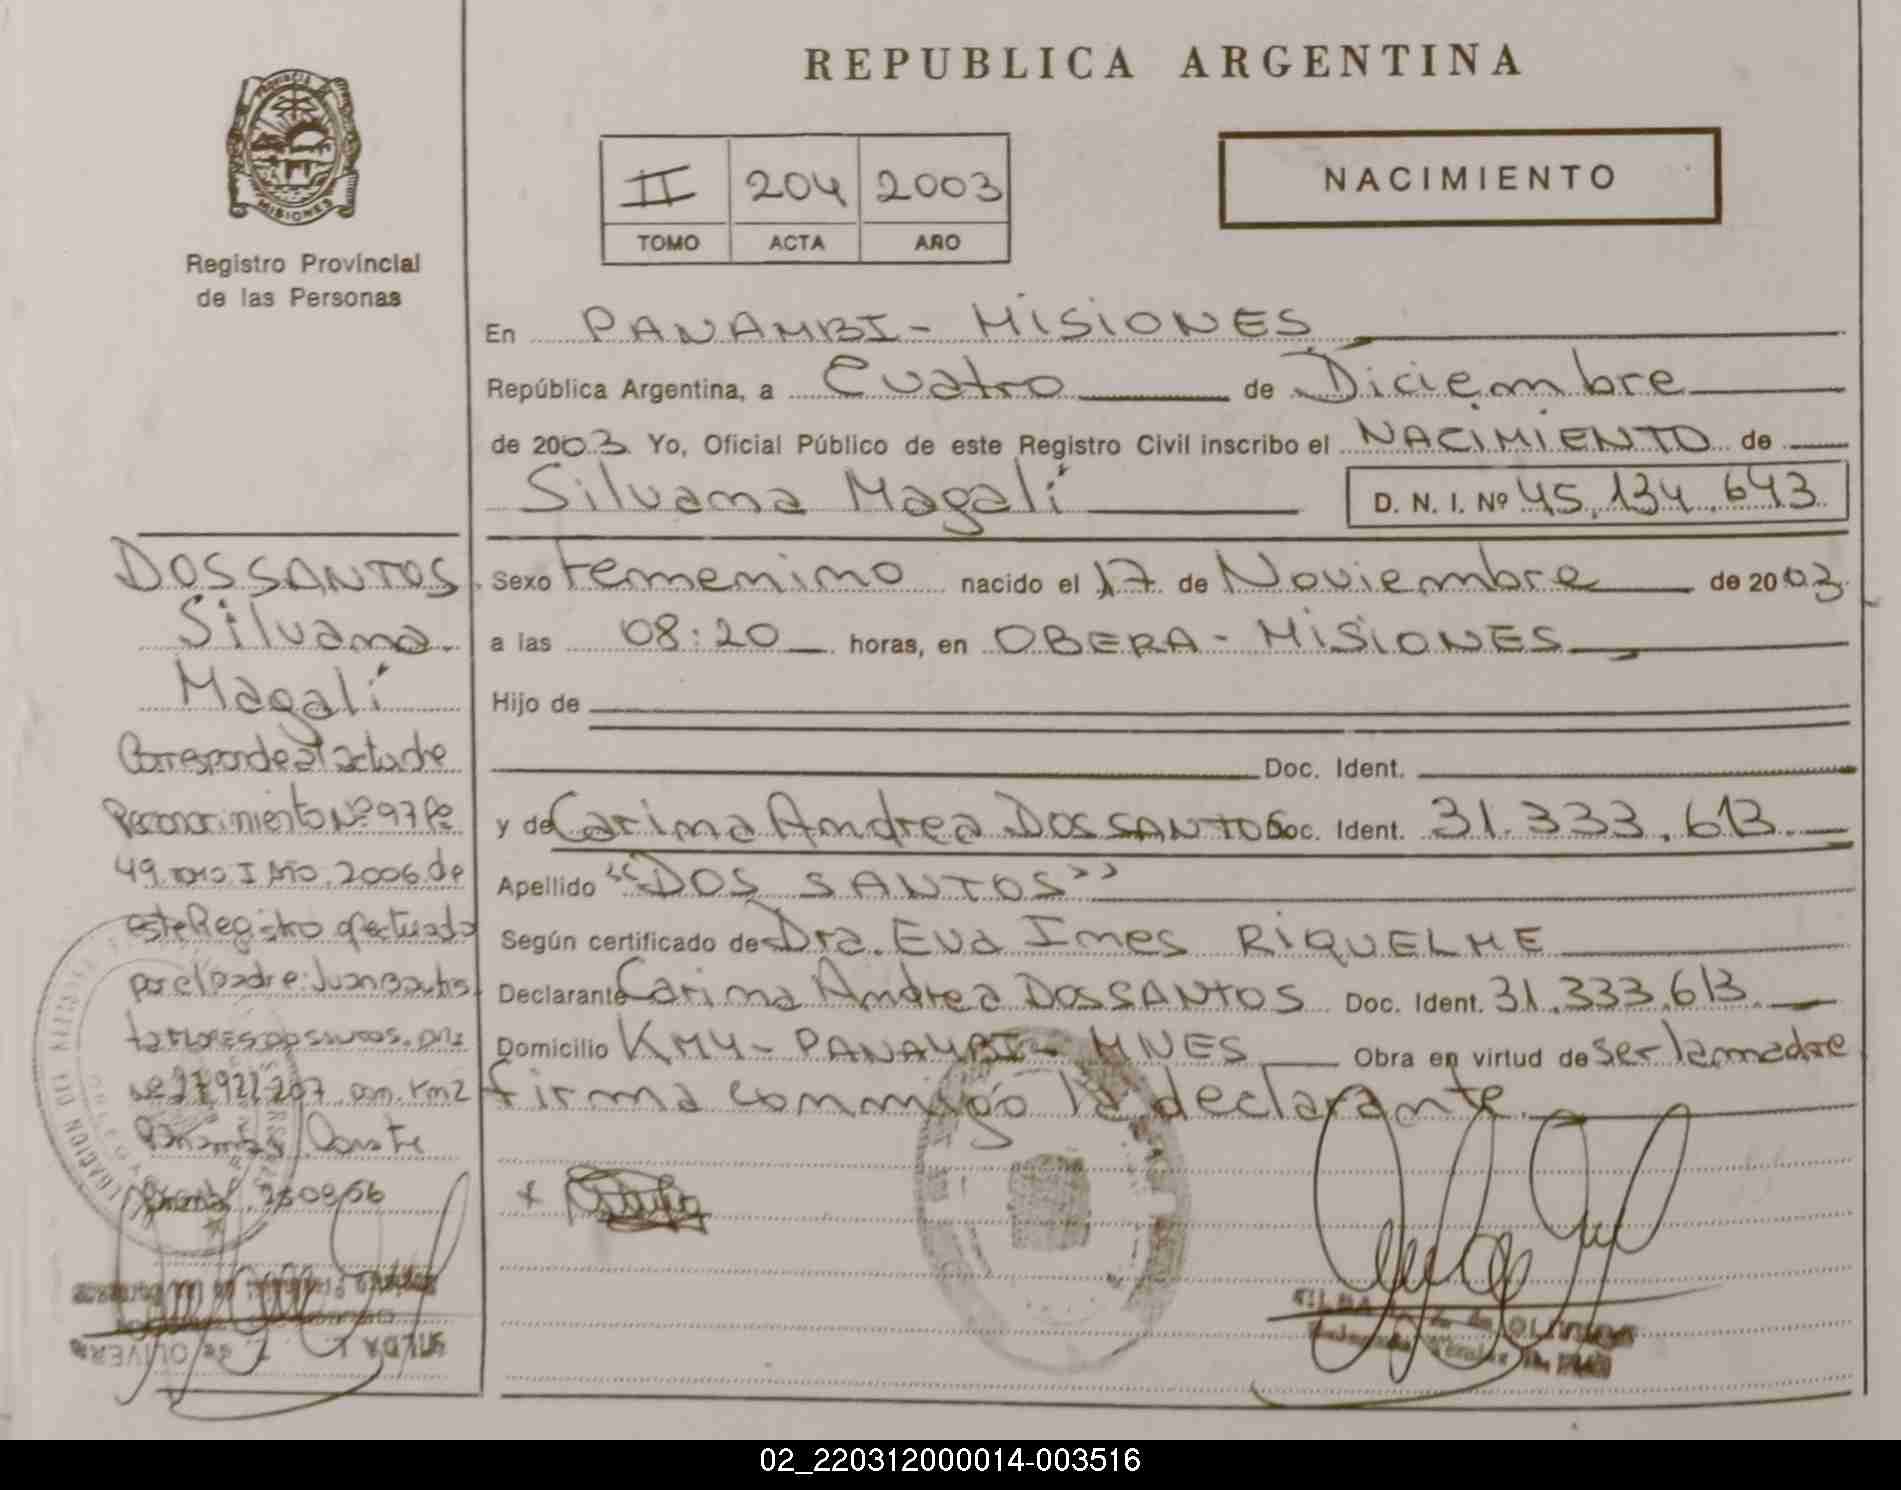 REPUBLICA ARGENTINA
PROVINCIA DE
MISIONES
Registro Provincial
de las Personas
II 204 2003
TOMO ACTA AÑO
NACIMIENTO
En PANAMBI - MISIONES
República Argentina, a Cuatro de Diciembre
de 2003 Yo, Oficial Público de este Registro Civil inscribo el NACIMIENTO de
Silvana Magalí D. N. I. Nº 45.134.643
Sexo femenino nacido el 17 de Noviembre de 2003
a las 08:20 horas, en OBERA - MISIONES
Hijo de
Doc. Ident.
y de Carina Andrea DOS SANTOS Doc. Ident. 31.333.613
Apellido "DOS SANTOS"
Según certificado de Dra. Eva Ines RIQUELME
Declarante Carina Andrea DOS SANTOS Doc. Ident. 31.333.613
Domicilio KM4 - PANAMBI - MNES Obra en virtud de ser la madre
firma conmigo la declarante
DOS SANTOS
Silvana
Magalí
Corresponde al acta de
Reconocimiento Nº 97 Fº
49 tomo I Año 2006 de
este Registro efectuado
por el padre: Juan Bautis
ta
02_220312000014-003516